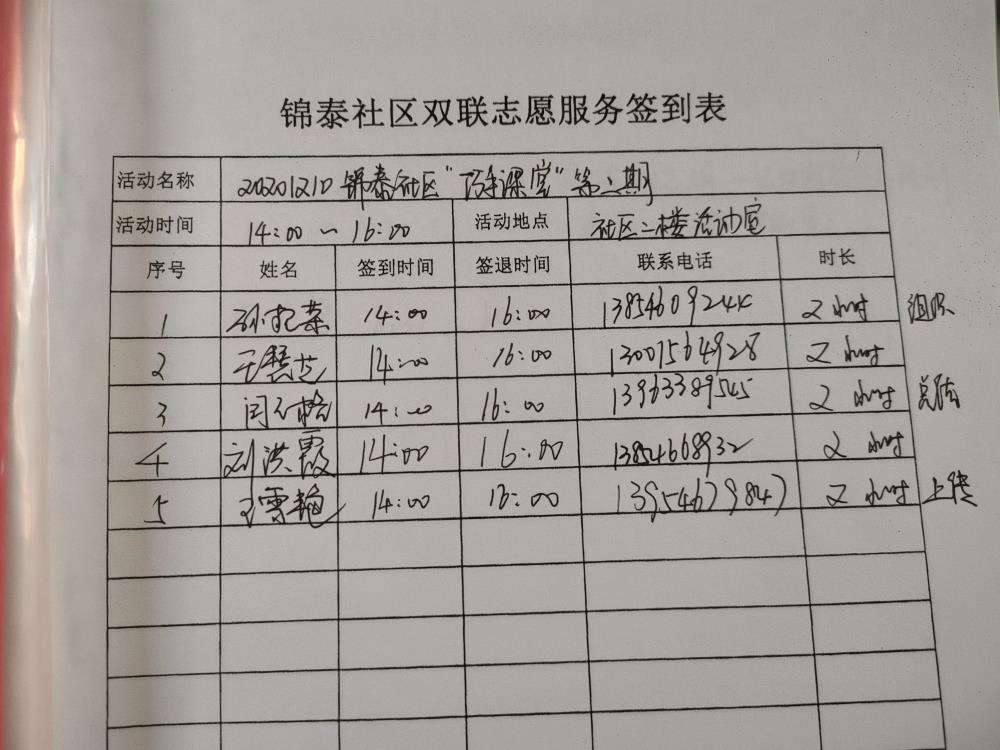 锦泰社区双联志愿服务签到表
活动名称 20201210 锦泰社区“巧手课堂”第二期
活动时间 14:00 ~ 16:00 活动地点 社区二楼活动室
序号 姓名 签到时间 签退时间 联系电话 时长
1 14:00 16:00 2小时 组织
2 14:00 16:00 13007564928 2小时
3 14:00 16:00 13963389545 2小时 总结
4 刘洪霞 14:00 16:00 2小时
5 王雪艳 14:00 16:00 13954679847 2小时 上传